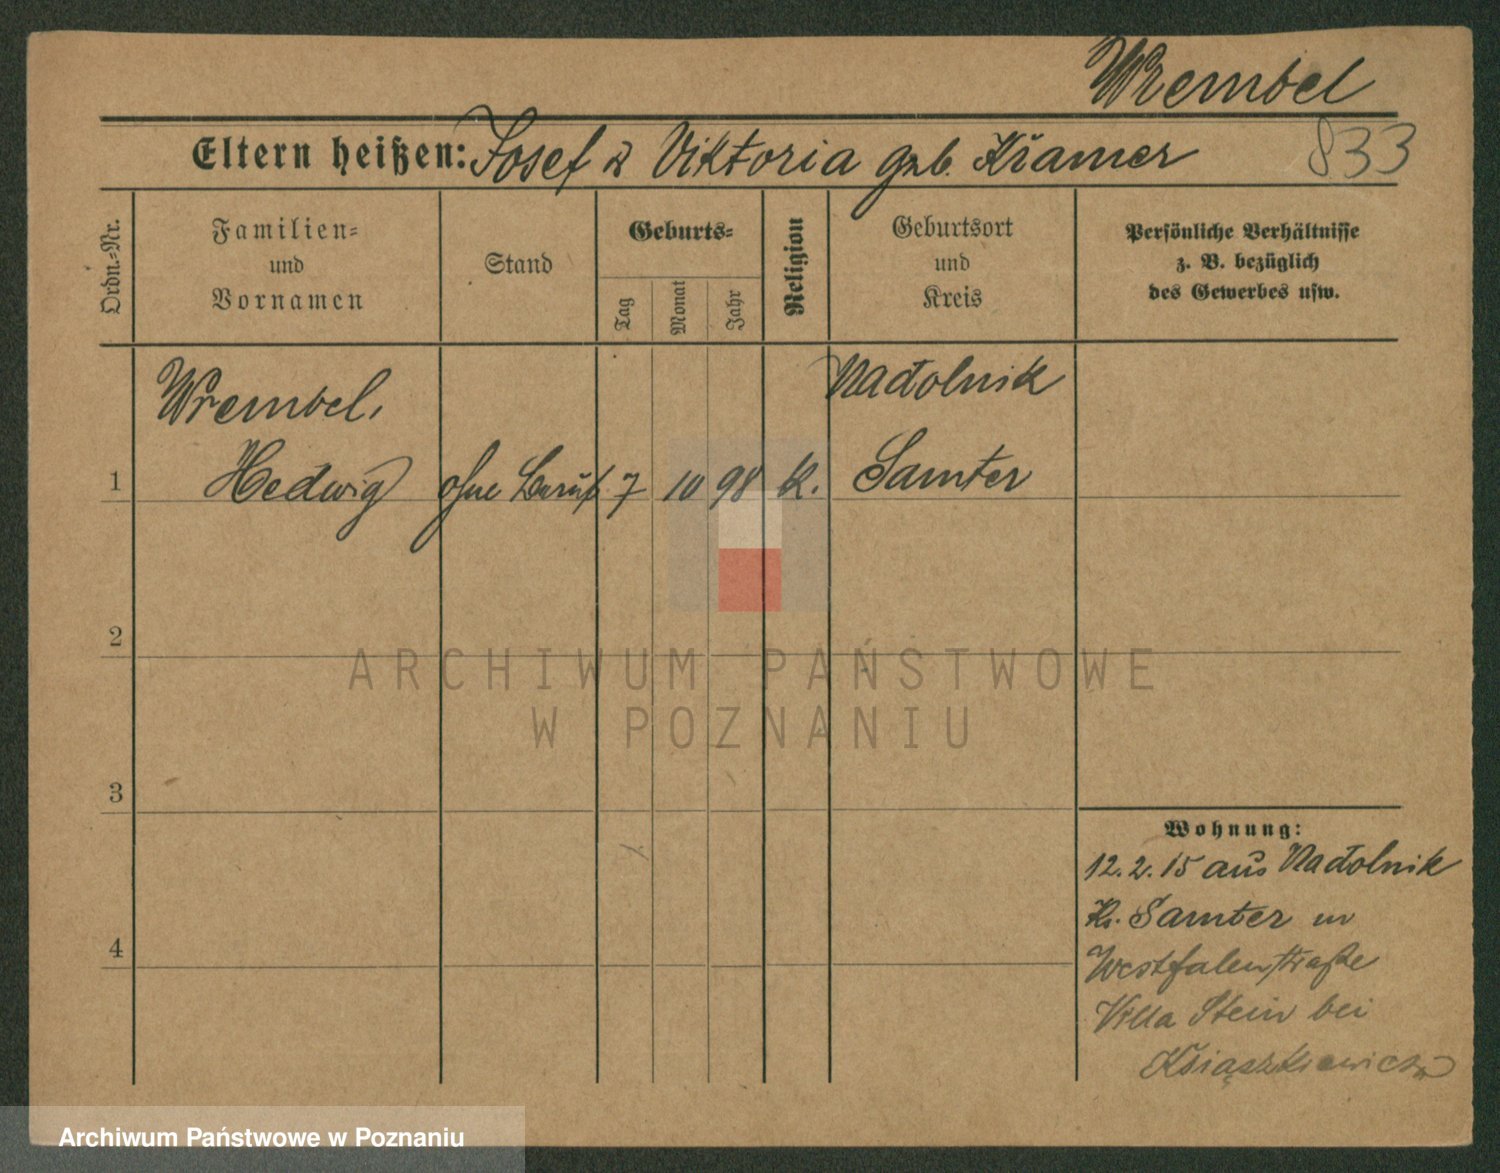 Wrembel
833
Eltern heißen: Josef & Viktoria geb. Kramer
Ordn.-Nr.
Familien-
und
Vornamen
Stand
Geburts-
Tag
Monat
Jahr
Religion
Geburtsort
und
Kreis
Persönliche Verhältnisse
z. B. bezüglich
des Gewerbes usw.
Wrembel,
Nadolnik
1 Hedwig ohne Beruf 7 10 98 k. Samter
2
ARCHIWUM PAŃSTWOWE
W POZNANIU
3
Wohnung:
12.2.15 aus Nadolnik
Kr. Samter in
4
Westfalenstraße
Villa Stein bei
Książkiewicz
Archiwum Państwowe w Poznaniu